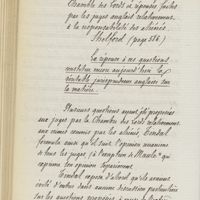 Chambre des Lords et réponses faites
par les juges anglais relativement
à la responsabilité des aliénés
Shelford (page 586.)
La réponse à ces questions
constitue encore aujourd'hui la
véritable jurisprudence anglaise sur
la matière.
Plusieurs questions ayant été proposées
aux juges par la Chambre des Lords relativement
aux crimes commis par les aliénés Tendal
formula ainsi qu'il suit l'opinion unanime
à tous les juges, à l'exception de Maule qui
exprima son opinion séparément.
Tendal exposa d'abord qu'ils avaient
évité d'entrer dans aucune discussion particulière
sur les questions